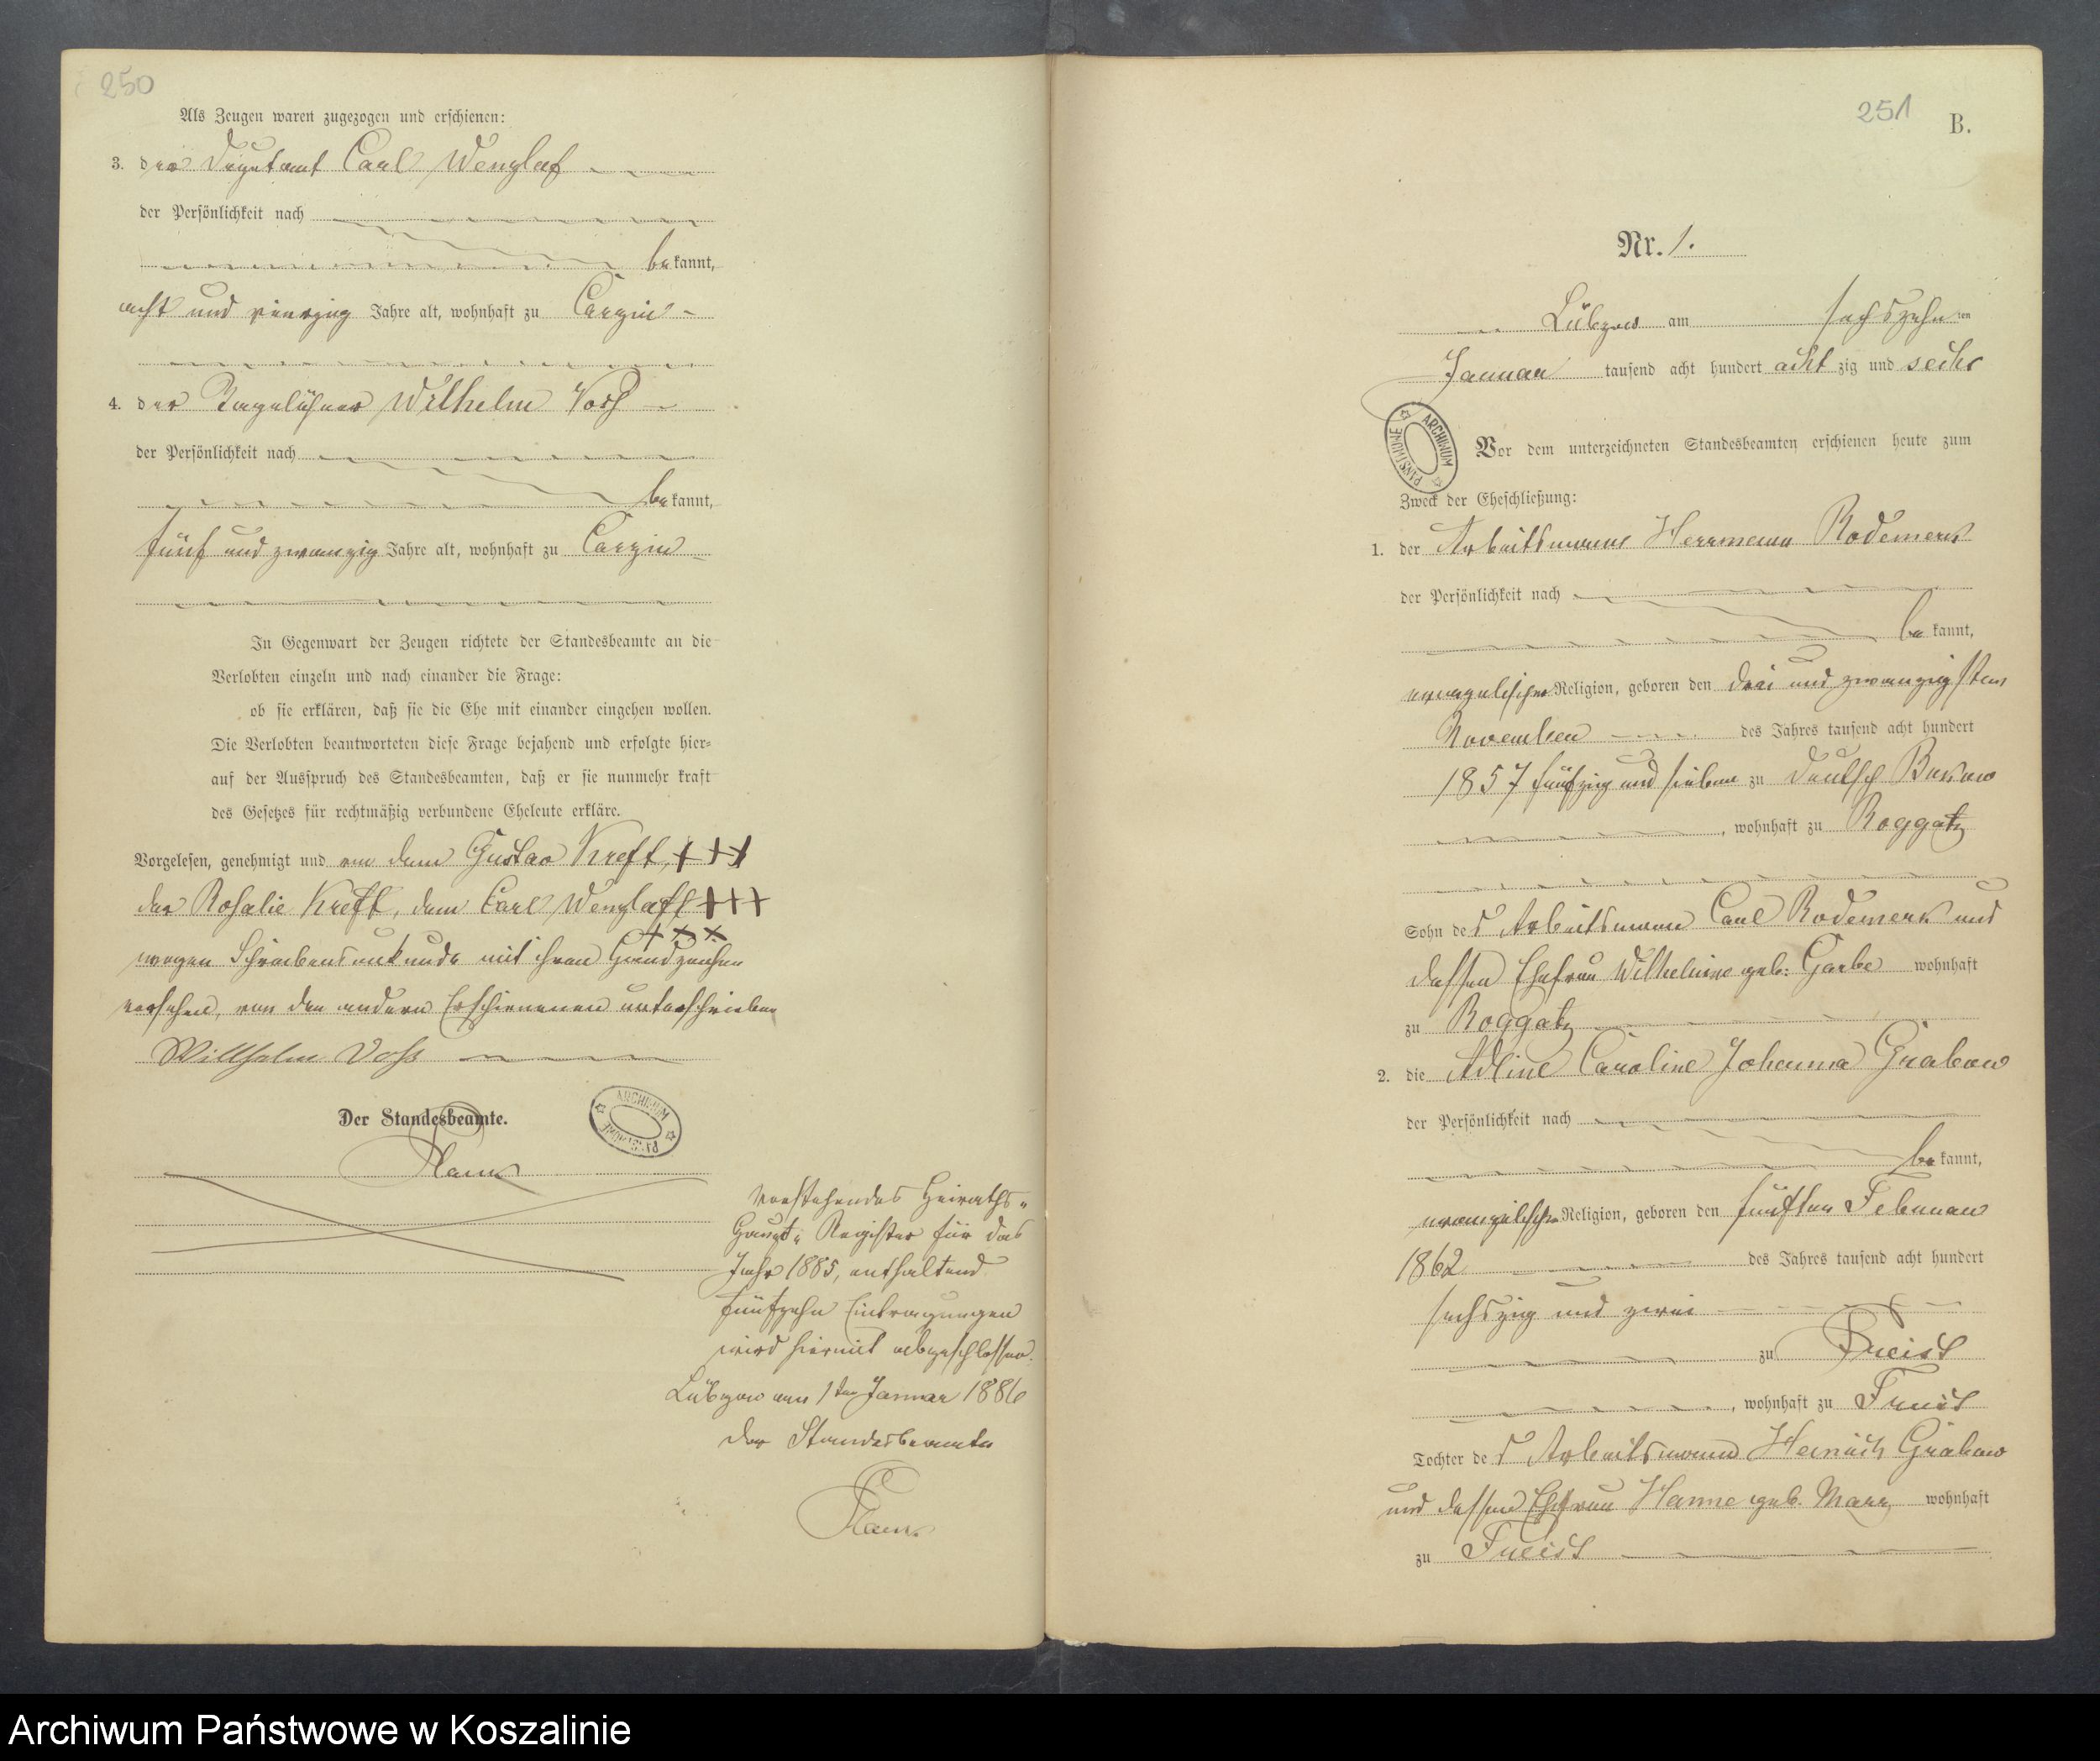 250
Als Zeugen waren zugezogen und erschienen:
3. der Deputant Carl Wenzlaf
der Persönlichkeit nach
bekannt,
acht und vierzig Jahre alt, wohnhaft zu Carzin
4. der Tagelöhner Wilhelm Voss
der Persönlichkeit nach
bekannt,
fünf und zwanzig Jahre alt, wohnhaft zu Carzin
In Gegenwart der Zeugen richtete der Standesbeamte an die
Verlobten einzeln und nach einander die Frage:
ob sie erklären, daß sie die Ehe mit einander eingehen wollen.
Die Verlobten beantworteten diese Frage bejahend und erfolgte hier-
auf der Ausspruch des Standesbeamten, daß er sie nunmehr kraft
des Gesetzes für rechtmäßig verbundene Eheleute erkläre.
Vorgelesen, genehmigt und von dem Gustav Kreft, +++
der Rosalie Kreft, dem Carl Wenzlaff +++
+++
wegen Schreibensunkunde mit ihren Handzeichen
versehen, von den andern Erschienenen unterschrieben
Willhelm Voß
Der Standesbeamte.
ARCHIWUM PAŃSTWOWE
Vorstehendes Heiraths-
Haupt-Register für das
Jahr 1885, enthaltend
fünfzehn Eintragungen
wird hiermit abgeschlossen.
Lübzow am 1ten Januar 1886
Der Standesbeamte
251
B.
Nr. 1.
Lübzow am sechszehnten
Januar tausend acht hundert achtzig und sechs
ARCHIWUM PAŃSTWOWE
Vor dem unterzeichneten Standesbeamten erschienen heute zum
Zweck der Eheschließung:
1. der Arbeitsmann Herrmann Rodemerk
der Persönlichkeit nach
bekannt,
evangelischer Religion, geboren den drei und zwanzigsten
November des Jahres tausend acht hundert
1857 fünfzig und sieben zu Deutsch Bukow
, wohnhaft zu Roggatz
Sohn des Arbeitsmann Carl Rodemerk und
dessen Ehefrau Wilhelmine geb: Garbe wohnhaft
zu Roggatz
2. die Adline Caroline Johanna Grabow
der Persönlichkeit nach
bekannt,
evangelischer Religion, geboren den fünften Februar
1862 des Jahres tausend acht hundert
sechszig und zwei
zu Freist
, wohnhaft zu Freist
Tochter des Arbeitsmann Heinrich Grabow
und dessen Ehefrau Hanne geb. wohnhaft
zu Freist
Archiwum Państwowe w Koszalinie